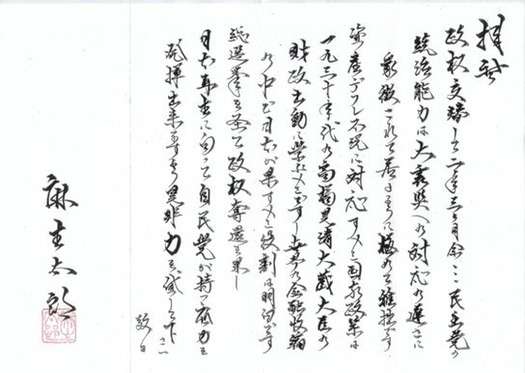 拝啓
政権交代して二年三ヶ月余 民主党の
統治能力は大震災への対応の遅さに
象徴されて居るように極めて稚拙です
資産デフレ不況に対応すべき国家政策は
一九三十年代の高橋是清大蔵大臣の
財政出動に学ぶべきです 世界の金融収縮
の中で日本が果すべき役割は明確です
総選挙を経て政権奪還を果し
日本再生に向って自民党が持つ底力を
発揮出来ますよう是非力を貸して下さい
敬白
麻生太郎